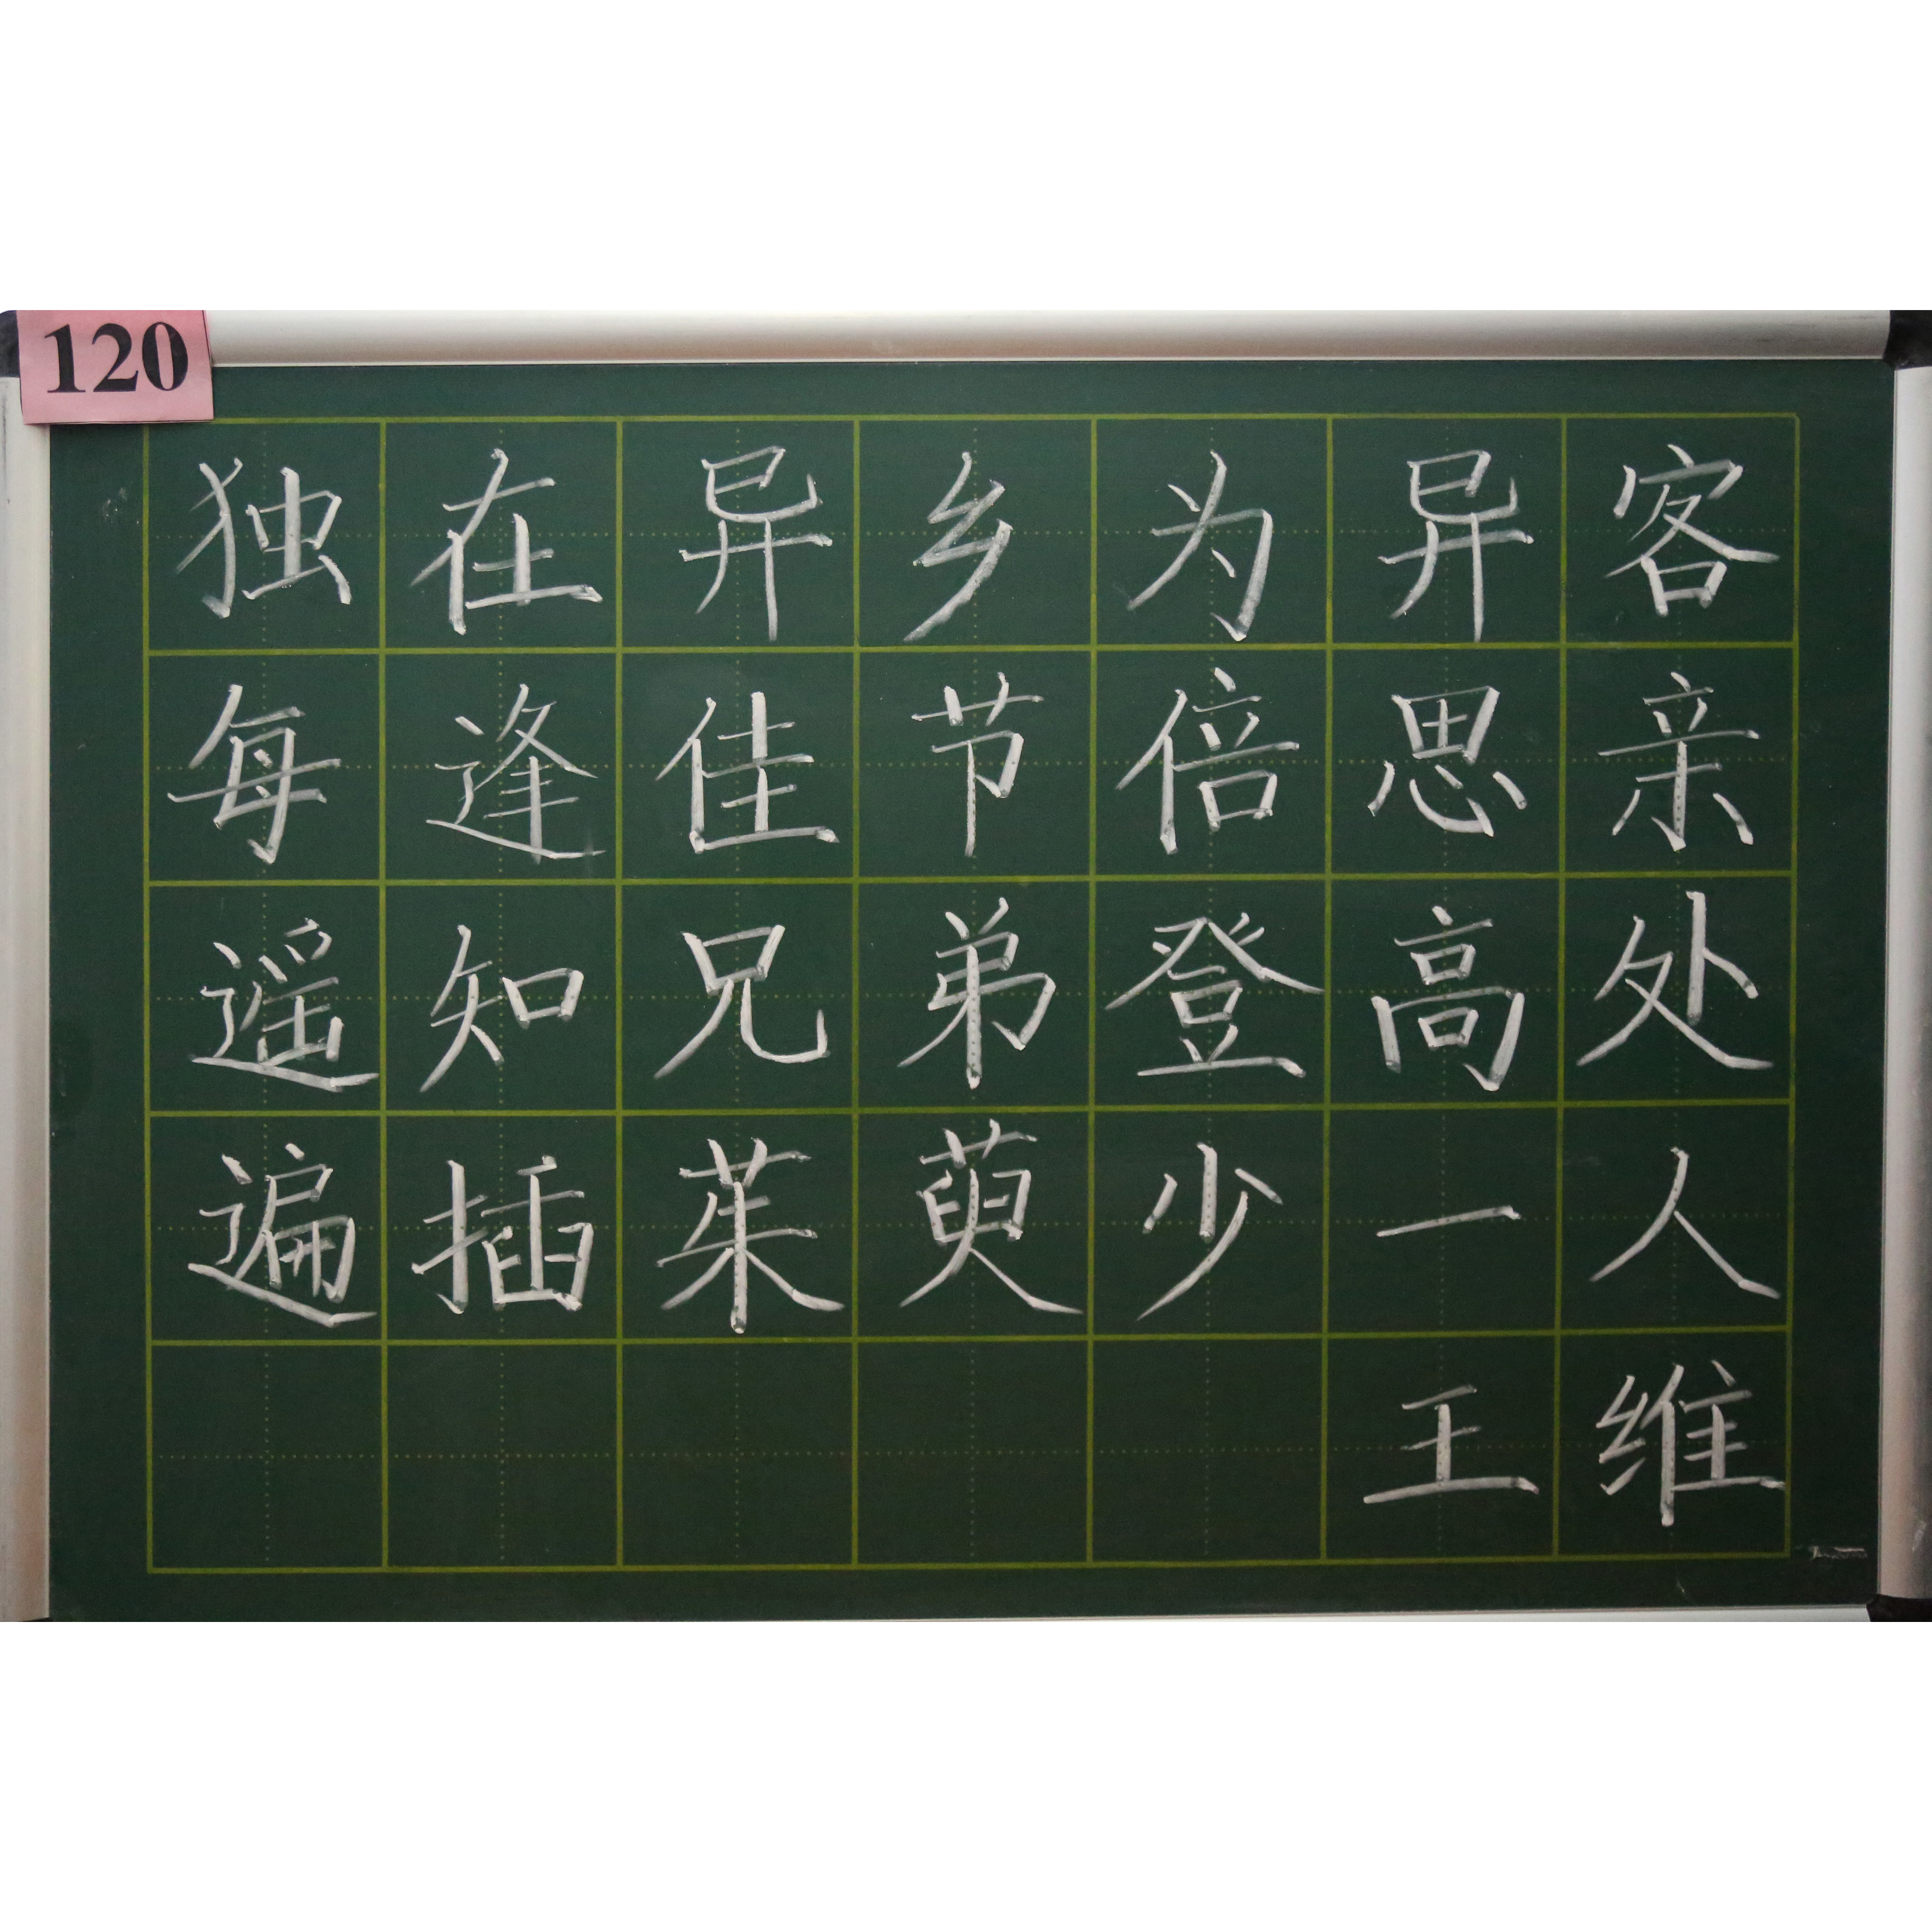 120
独在异乡为异客
每逢佳节倍思亲
遥知兄弟登高处
遍插茱萸少一人
王维